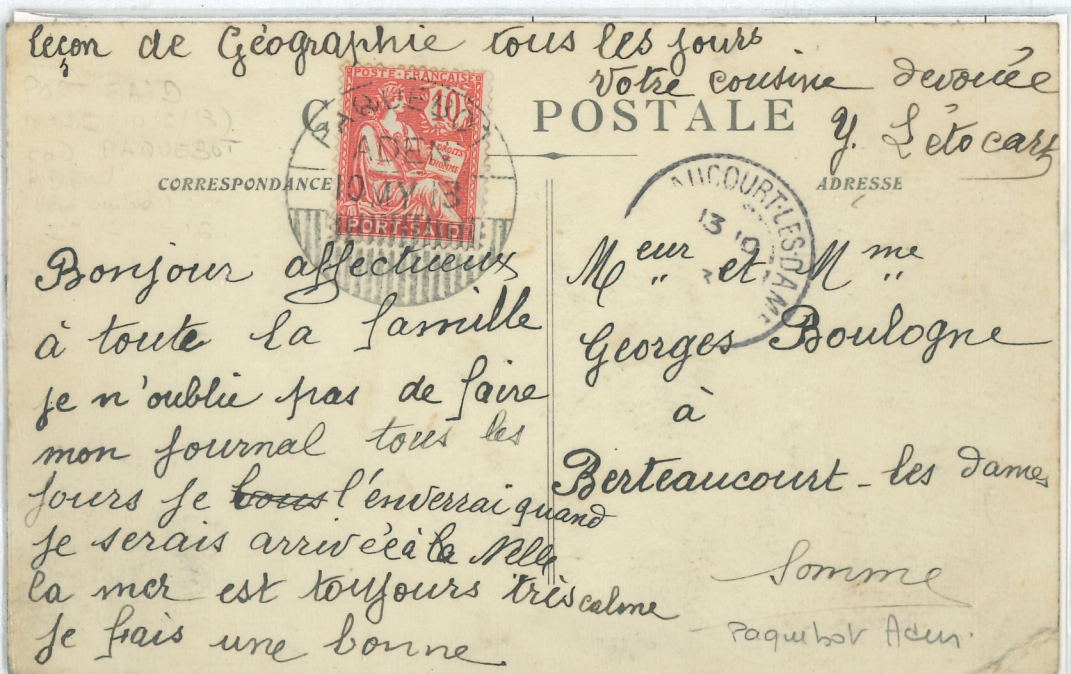 leçon de Géographie tous les jours
votre cousine dévouée
Y. Létocart
POSTE FRANÇAISE
10
DROITS
HOMME
PORT-SAID
PAQUEBOT
ADEN
10 MY 13
C
POSTALE
CORRESPONDANCE
ADRESSE
AUCOURT-LES-DAMES
13
Bonjour affectueux
à toute la famille
je n'oublie pas de faire
mon journal tous les
jours je vous l'enverrai quand
je serais arrivée à la Nelle
la mer est toujours très calme
je fais une bonne
Meur et Mme
Georges Boulogne
à
Berteaucourt-les dames
Somme
paquebot Aden.